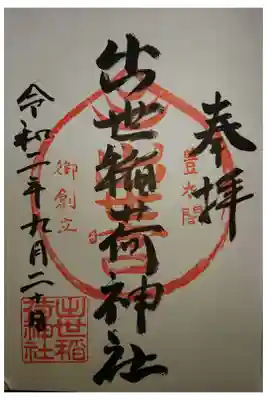 奉拝
豊太閤
出世稲荷神社
御創立
令和二年九月二十日
出世稲荷神社